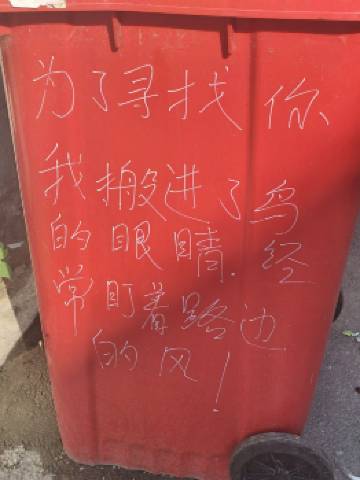 为了寻找你
我搬进了鸟
的眼睛.经
常盯着路边
的风！